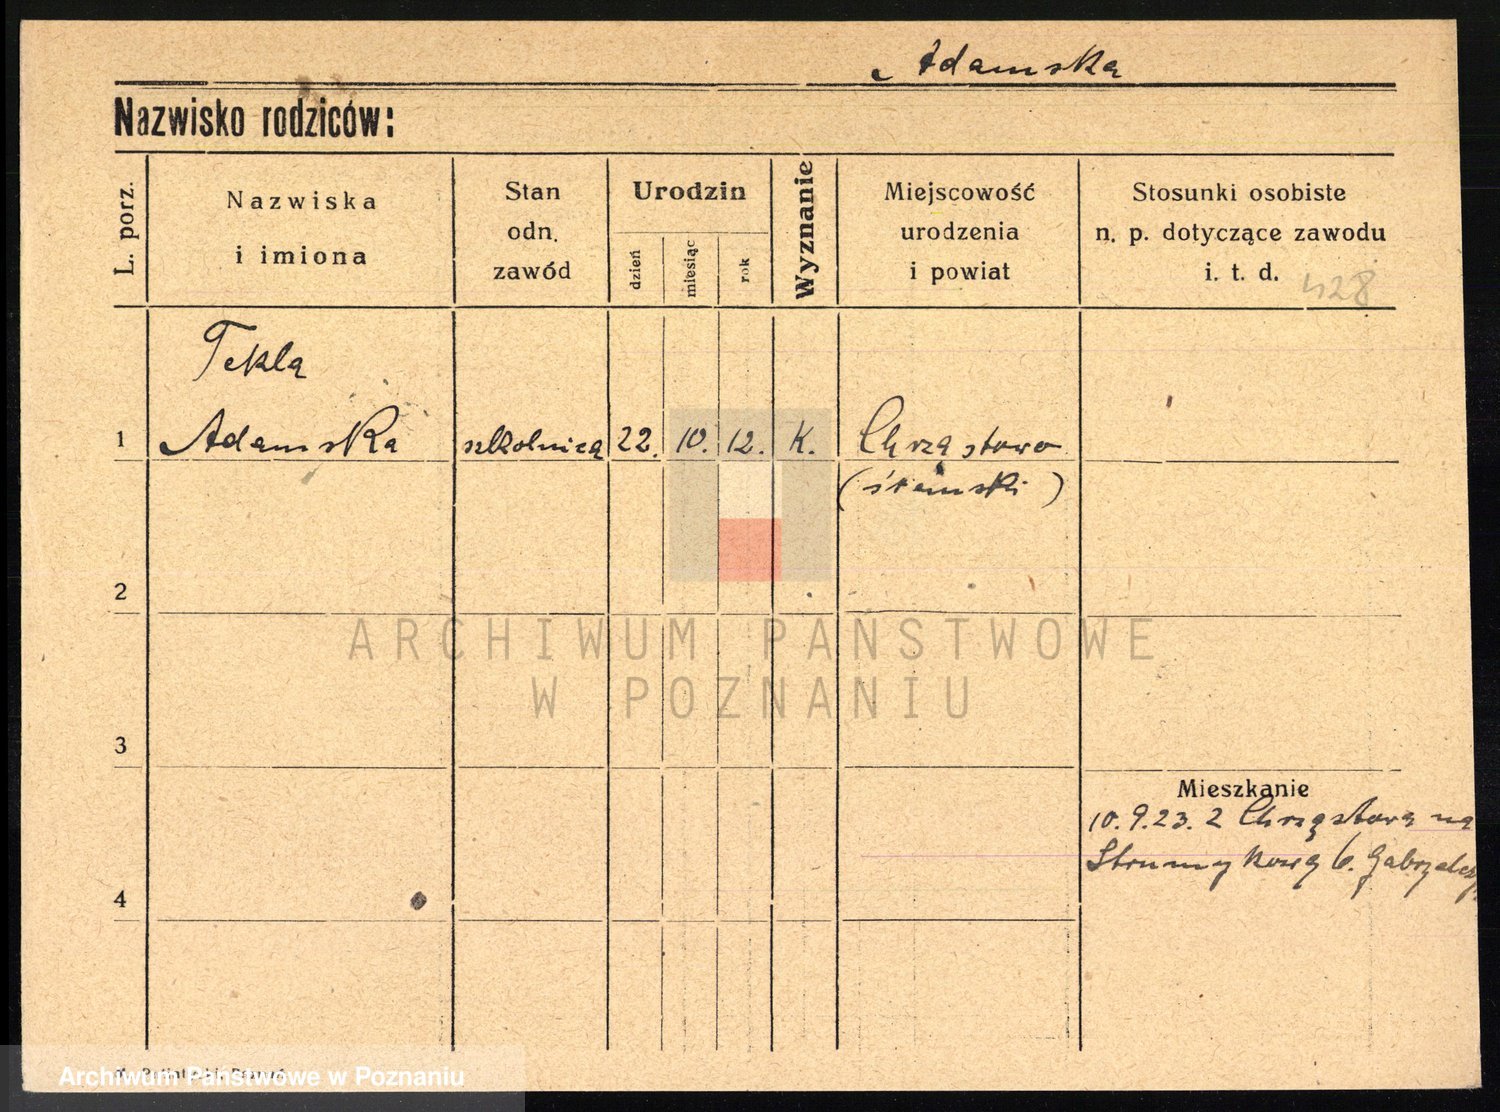 Adamska
Nazwisko rodziców:
L. porz.
Nazwiska
i imiona
Stan
odn.
zawód
Urodzin
dzień
miesiąc
rok
Wyznanie
Miejscowość
urodzenia
i powiat
Stosunki osobiste
n. p. dotyczące zawodu
i. t. d.
428
Tekla
1 Adamska szkolnica 22. 10. 12. K. Chrząstowo
(śremski)
2
ARCHIWUM PAŃSTWOWE
W POZNANIU
3
Mieszkanie
10.9.23. z Chrząstowa na
Strumykową 6.
4
Archiwum Państwowe w Poznaniu